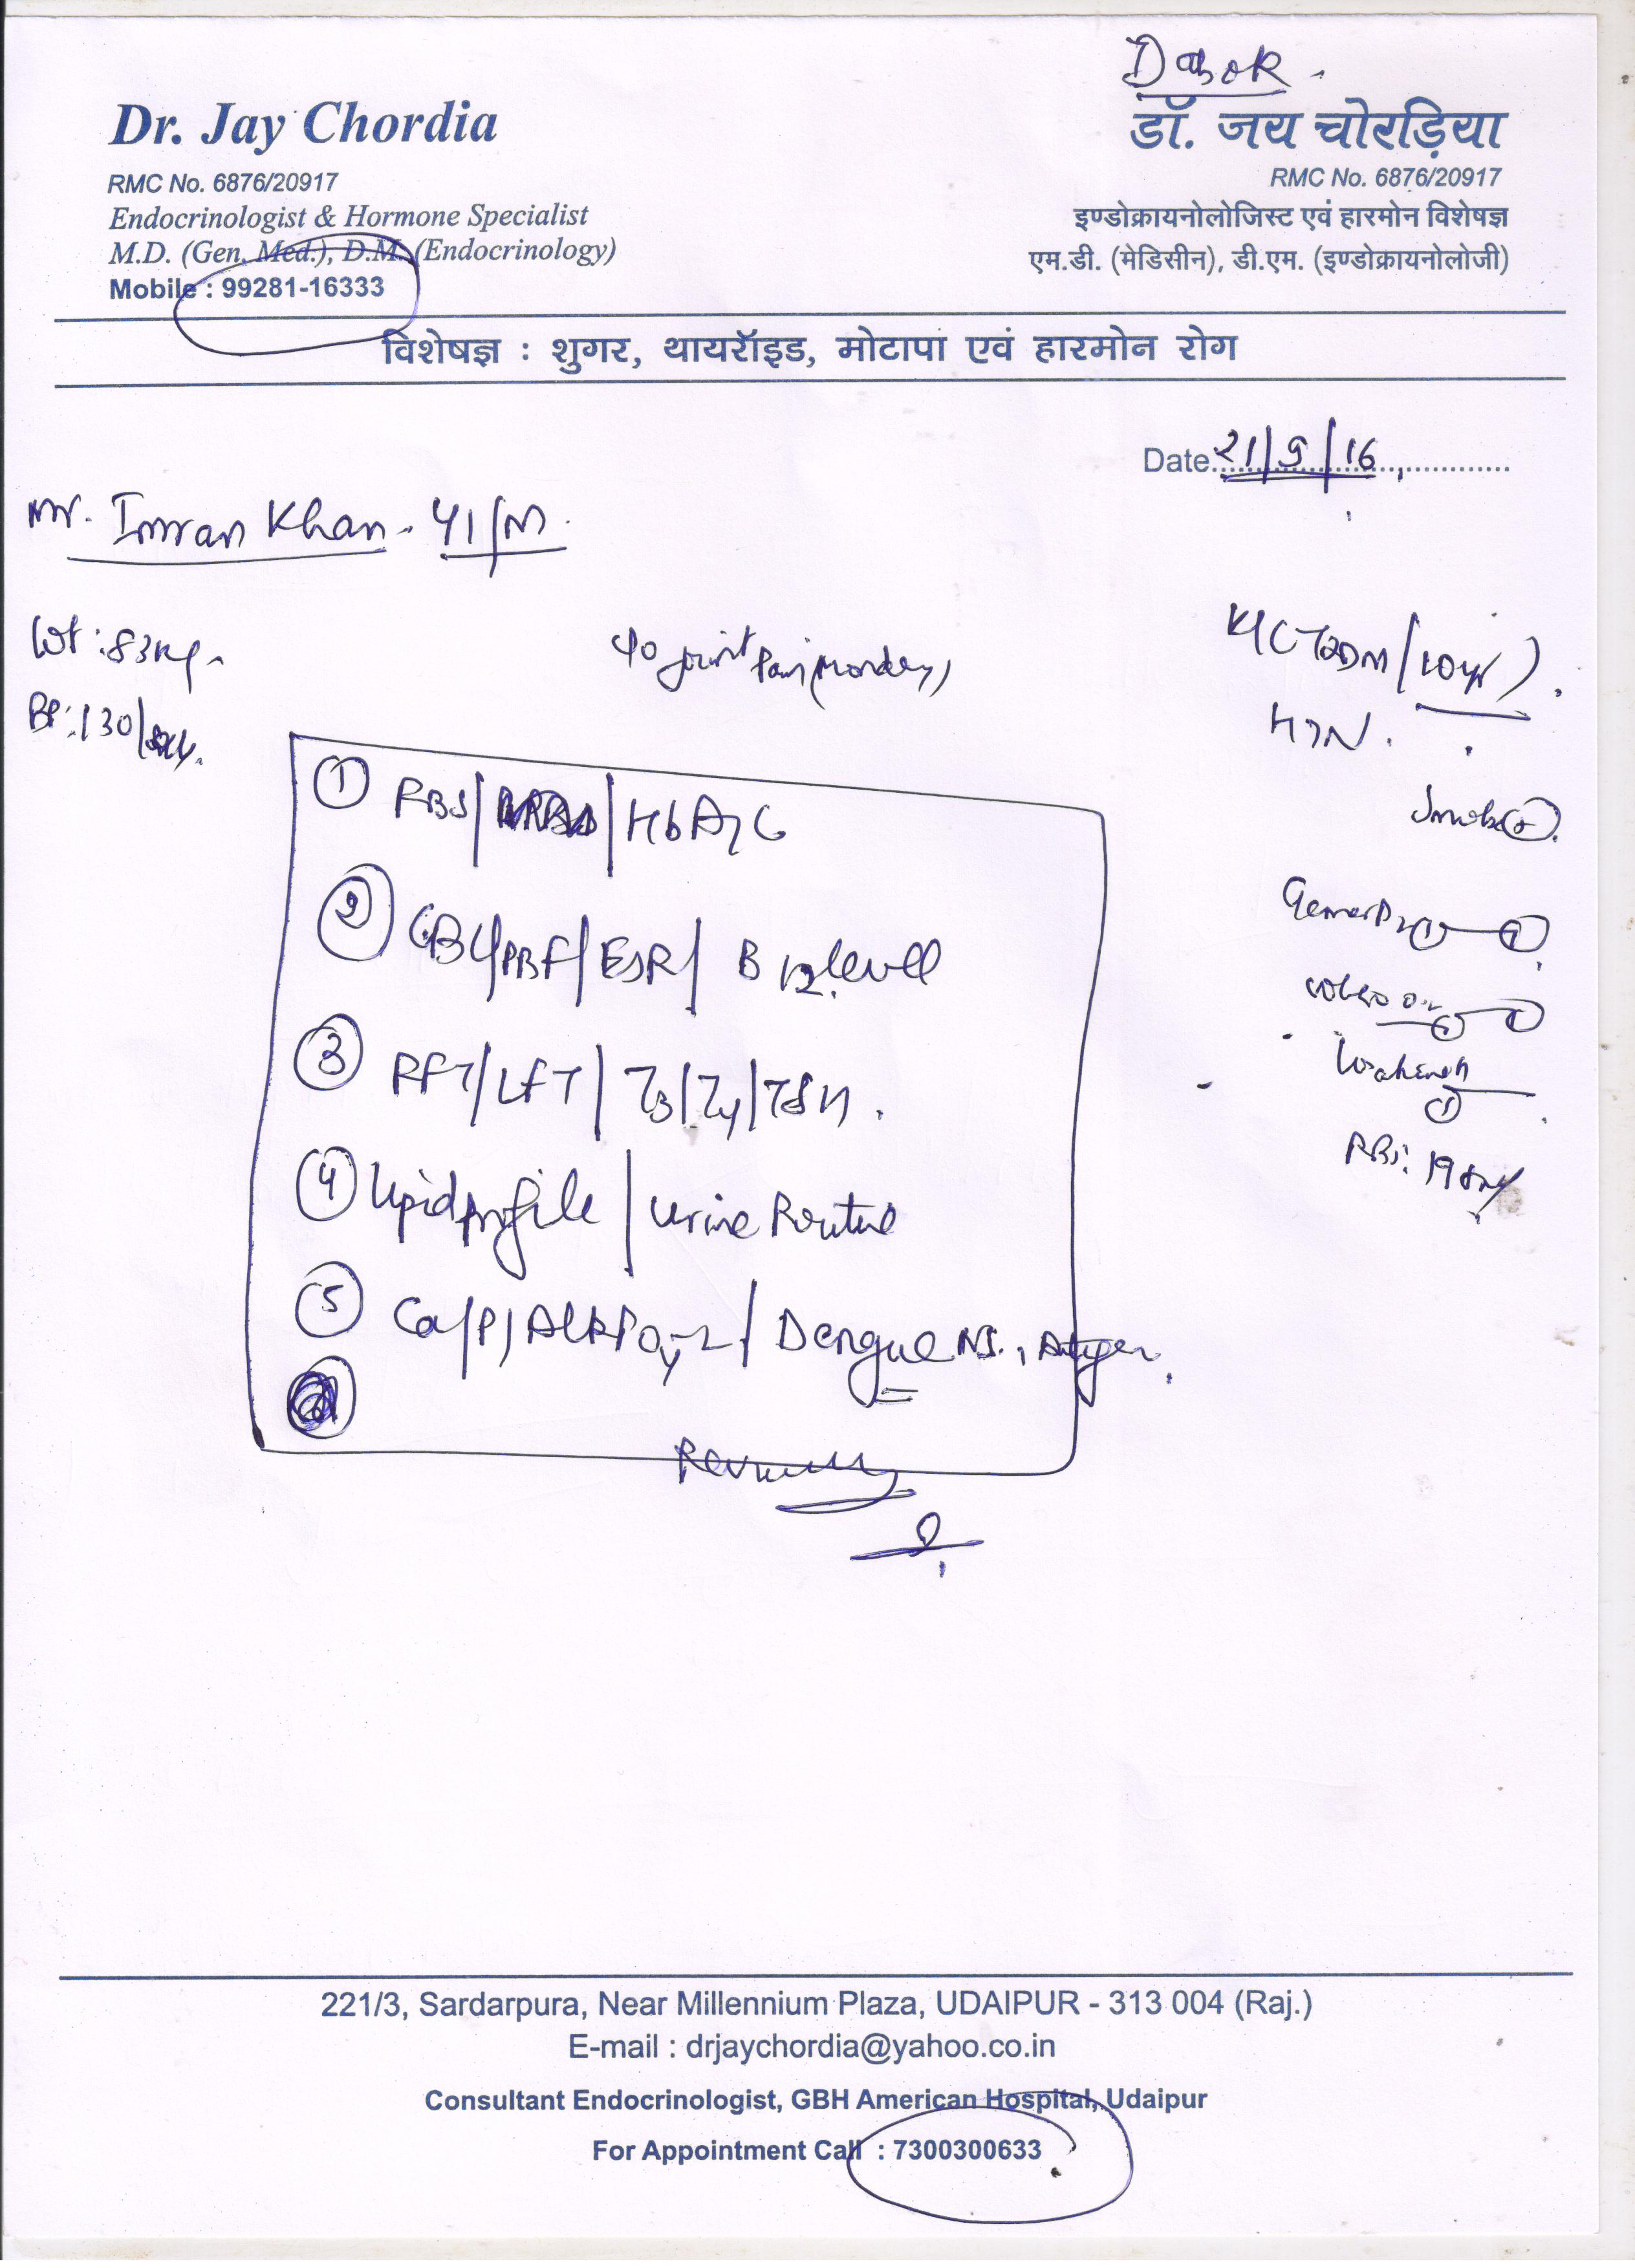 DaboK.
Dr. Jay Chordia
डॉ. जय चोरड़िया
RMC No. 6876/20917
RMC No. 6876/20917
Endocrinologist & Hormone Specialist
इण्डोक्रायनोलोजिस्ट एवं हारमोन विशेषज्ञ
M.D. (Gen. Med.), D.M. (Endocrinology)
एम.डी. (मेडिसीन), डी.एम. (इण्डोक्रायनोलोजी)
Mobile : 99281-16333
विशेषज्ञ : शुगर, थायरॉइड, मोटापा एवं हारमोन रोग
Date 21/9/16
Mr. Imran Khan - 41/M.
Wt : 83kg
BP : 130/
c/o joint Pain
K/C T2DM/10yr).
HTN.
① RBS/ /HbA1C
② CBC/PBF/ESR/ B12 level
③ RFT/LFT/T3/T4/TSH.
④ Lipid profile/Urine Routine
⑤ Ca/P/AlkPO4/Dengue NS1 Antigen.
RBS: 198
221/3, Sardarpura, Near Millennium Plaza, UDAIPUR - 313 004 (Raj.)
E-mail : drjaychordia@yahoo.co.in
Consultant Endocrinologist, GBH American Hospital, Udaipur
For Appointment Call : 7300300633